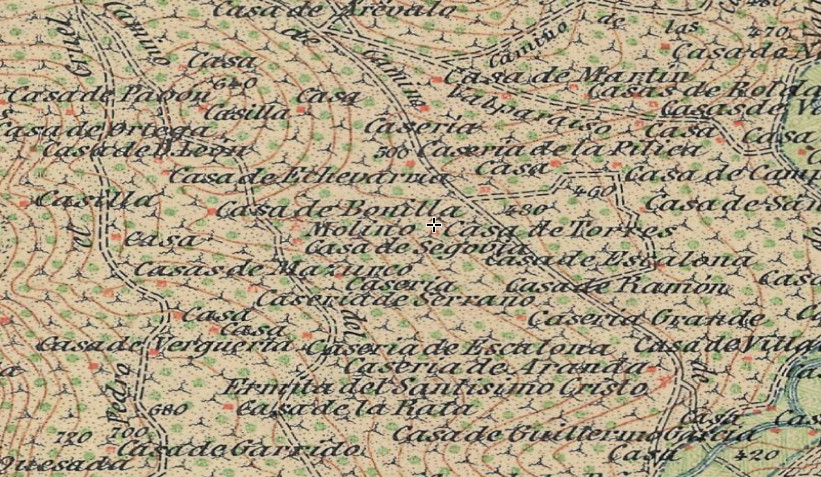 Casa de Arévalo
480
Camino
de
las
Cruz
Camino
de
470
Casa de
Casa
Casa de Martin
640
Camino
Casa de Pavón
Casa
Valparaiso
Casas de Rolda
Casilla
Casas de V
Casa de Ortega
Caseria
Casa
Casa
Casa de D. León
590
Caseria de la Pilica
Casa
Casa de Echevarria
Casa de Camp
460
Casilla
Casa de Bonilla
480
Casa de San
Molino
Casa de Torres
el
Casa
Casa de Segovia
Casa de Escalona
Casas de Mazurco
Caseria
Casa de Ramón
Casa
Caseria de Serrano
Casa
Caseria Grande
Casa
del
Casa de Vergueria
Caseria de Escalona
Casa de Villa
Caseria de Aranda
de
Ermita del Santisimo Cristo
Pedro
680
Casa de la Rata
Casa
720
700
Casa de Guillermo Garcia
Casa de Garrido
Casa
420
Quesada